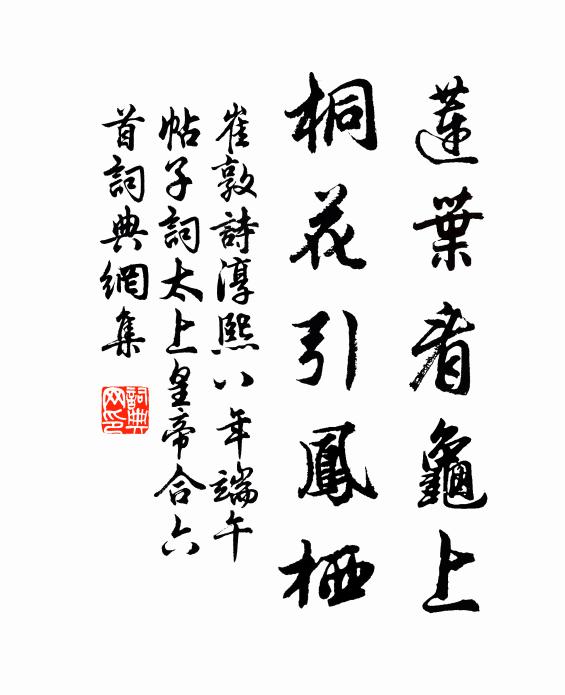 蓮葉看龜上
桐花引鳳栖
崔敦詩淳熙八年端午
帖子詞太上皇帝合六
首詞典網集
詞典
网印